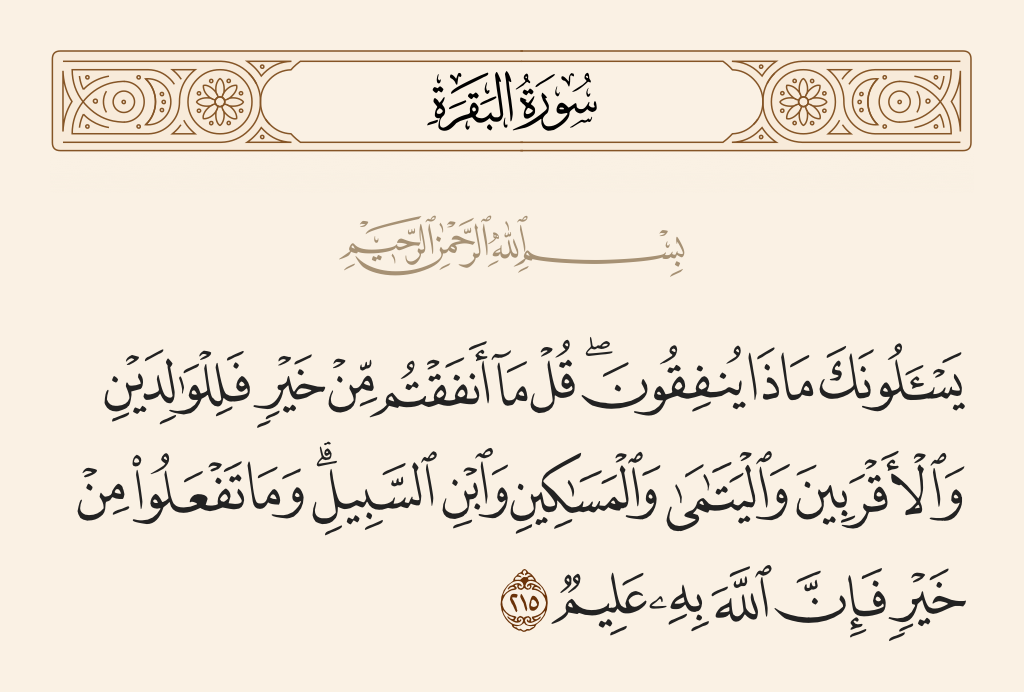 سُورَةُ البَقَرَةِ
بِسْمِ ٱللَّهِ ٱلرَّحْمَٰنِ ٱلرَّحِيمِ
يَسْـَٔلُونَكَ مَاذَا يُنفِقُونَ ۖ قُلْ مَآ أَنفَقْتُم مِّنْ خَيْرٍ فَلِلْوَٰلِدَيْنِ
وَٱلْأَقْرَبِينَ وَٱلْيَتَـٰمَىٰ وَٱلْمَسَـٰكِينِ وَٱبْنِ ٱلسَّبِيلِ ۗ وَمَا تَفْعَلُوا۟ مِنْ
خَيْرٍ فَإِنَّ ٱللَّهَ بِهِۦ عَلِيمٌ ٢١٥